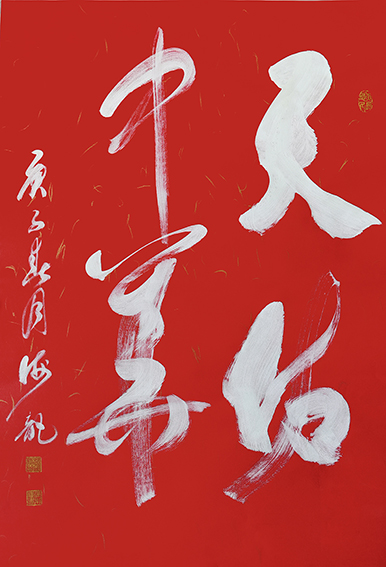 天佑
中華
庚子春月海龍